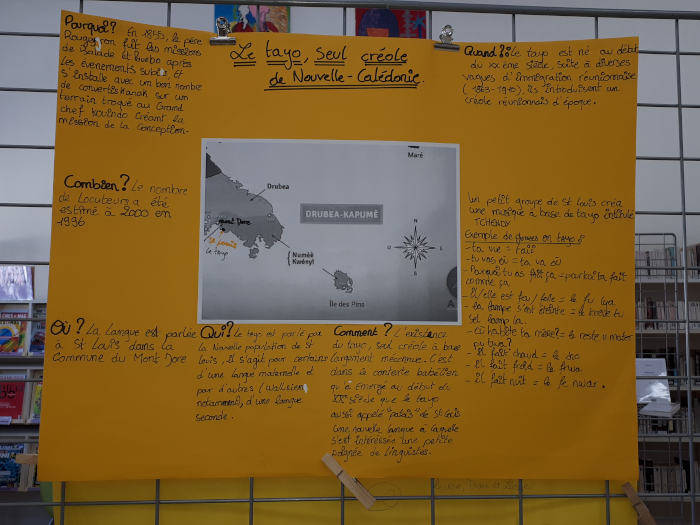 Le tayo, seul créole
de Nouvelle-Calédonie.
Pourquoi? En 1855, le père
Rougeyron fuit les missions
de Balade et Pouébo après
les évenements subis, et
s'installe avec un bon nombre
de convertis kanak sur un
terrain troqué au Grand
chef Kouindo créant la
mission de la conception.
Combien? Le nombre
de locuteurs a été
estimé à 2000 en
1996
Où? La langue est parlée
à St Louis dans la
Commune du Mont Dore
Qui? Le tayo est parlé par
la Nouvelle population de St
Louis, il s'agit pour certains
d'une langue maternelle et
pour d'autres (wallisien
notamment), d'une langue
seconde.
Drubea
Maré
DRUBEA-KAPUMË
Mont Dore
le tayo
Numèè
Kwényï
Île des Pins
N
O
E
S
A
Comment? L'existence
du tayo, seul créole à base
longtemps méconnue. C'est
dans le contexte babélien
qu'a émergé au début du
XXe siècle que le tayo
aussi appelé "patois" de St Louis
une nouvelle langue à laquelle
s'est intéressée une petite
poignée de linguistes.
Quand?: Le tayo est né au début
du XXème siècle, suite à diverses
vagues d'immigration réunionnaise
(1863-1910), ils introduisent un
créole réunionnais d'époque.
Un petit groupe de St Louis créa
une musique à base de tayo intitulé
TCHENDY
Exemple de phrases en tayo:
- ta vue =
- tu vas où = ta va où
- Pourquoi tu as fait ça = parkoi ta fait
comme ça
- Il/elle est fou/folle = le fu lya
- la lampe s'est éteinte =
- Où habite ta mère? = le reste u mater
pu twa?
- Il fait chaud = le sho
- Il fait froid = le frwa
- Il fait nuit = le fe nwar.